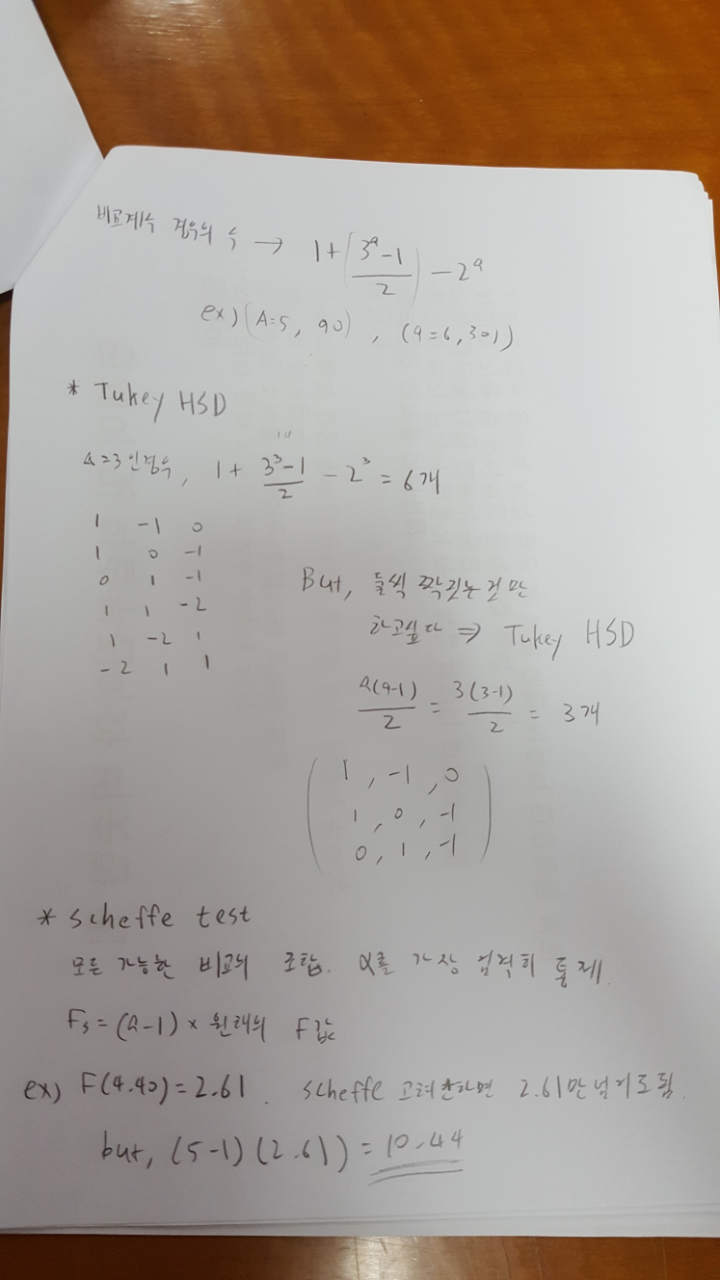 비교계수 경우의 수 → 1 + (3ᵃ-1 / 2) - 2ᵃ
ex) (A=5, 90), (a=6, 301)
* Tukey HSD
a=3인경우, 1 + 3³-1 / 2 - 2³ = 6개
1 -1 0
1 0 -1
0 1 -1
1 1 -2
1 -2 1
-2 1 1
But, 둘씩 짝짓는것만
하고싶다 ⇒ Tukey HSD
a(a-1) / 2 = 3(3-1) / 2 = 3개
1, -1, 0
1, 0, -1
0, 1, -1
* scheffe test
모든 가능한 비교의 조합. α를 가장 엄격히 통제.
Fs = (a-1) × 원래의 F값
ex) F(4.40) = 2.61. scheffe 고려안하면 2.61만 넘어도 됨.
but, (5-1)(2.61) = 10.44